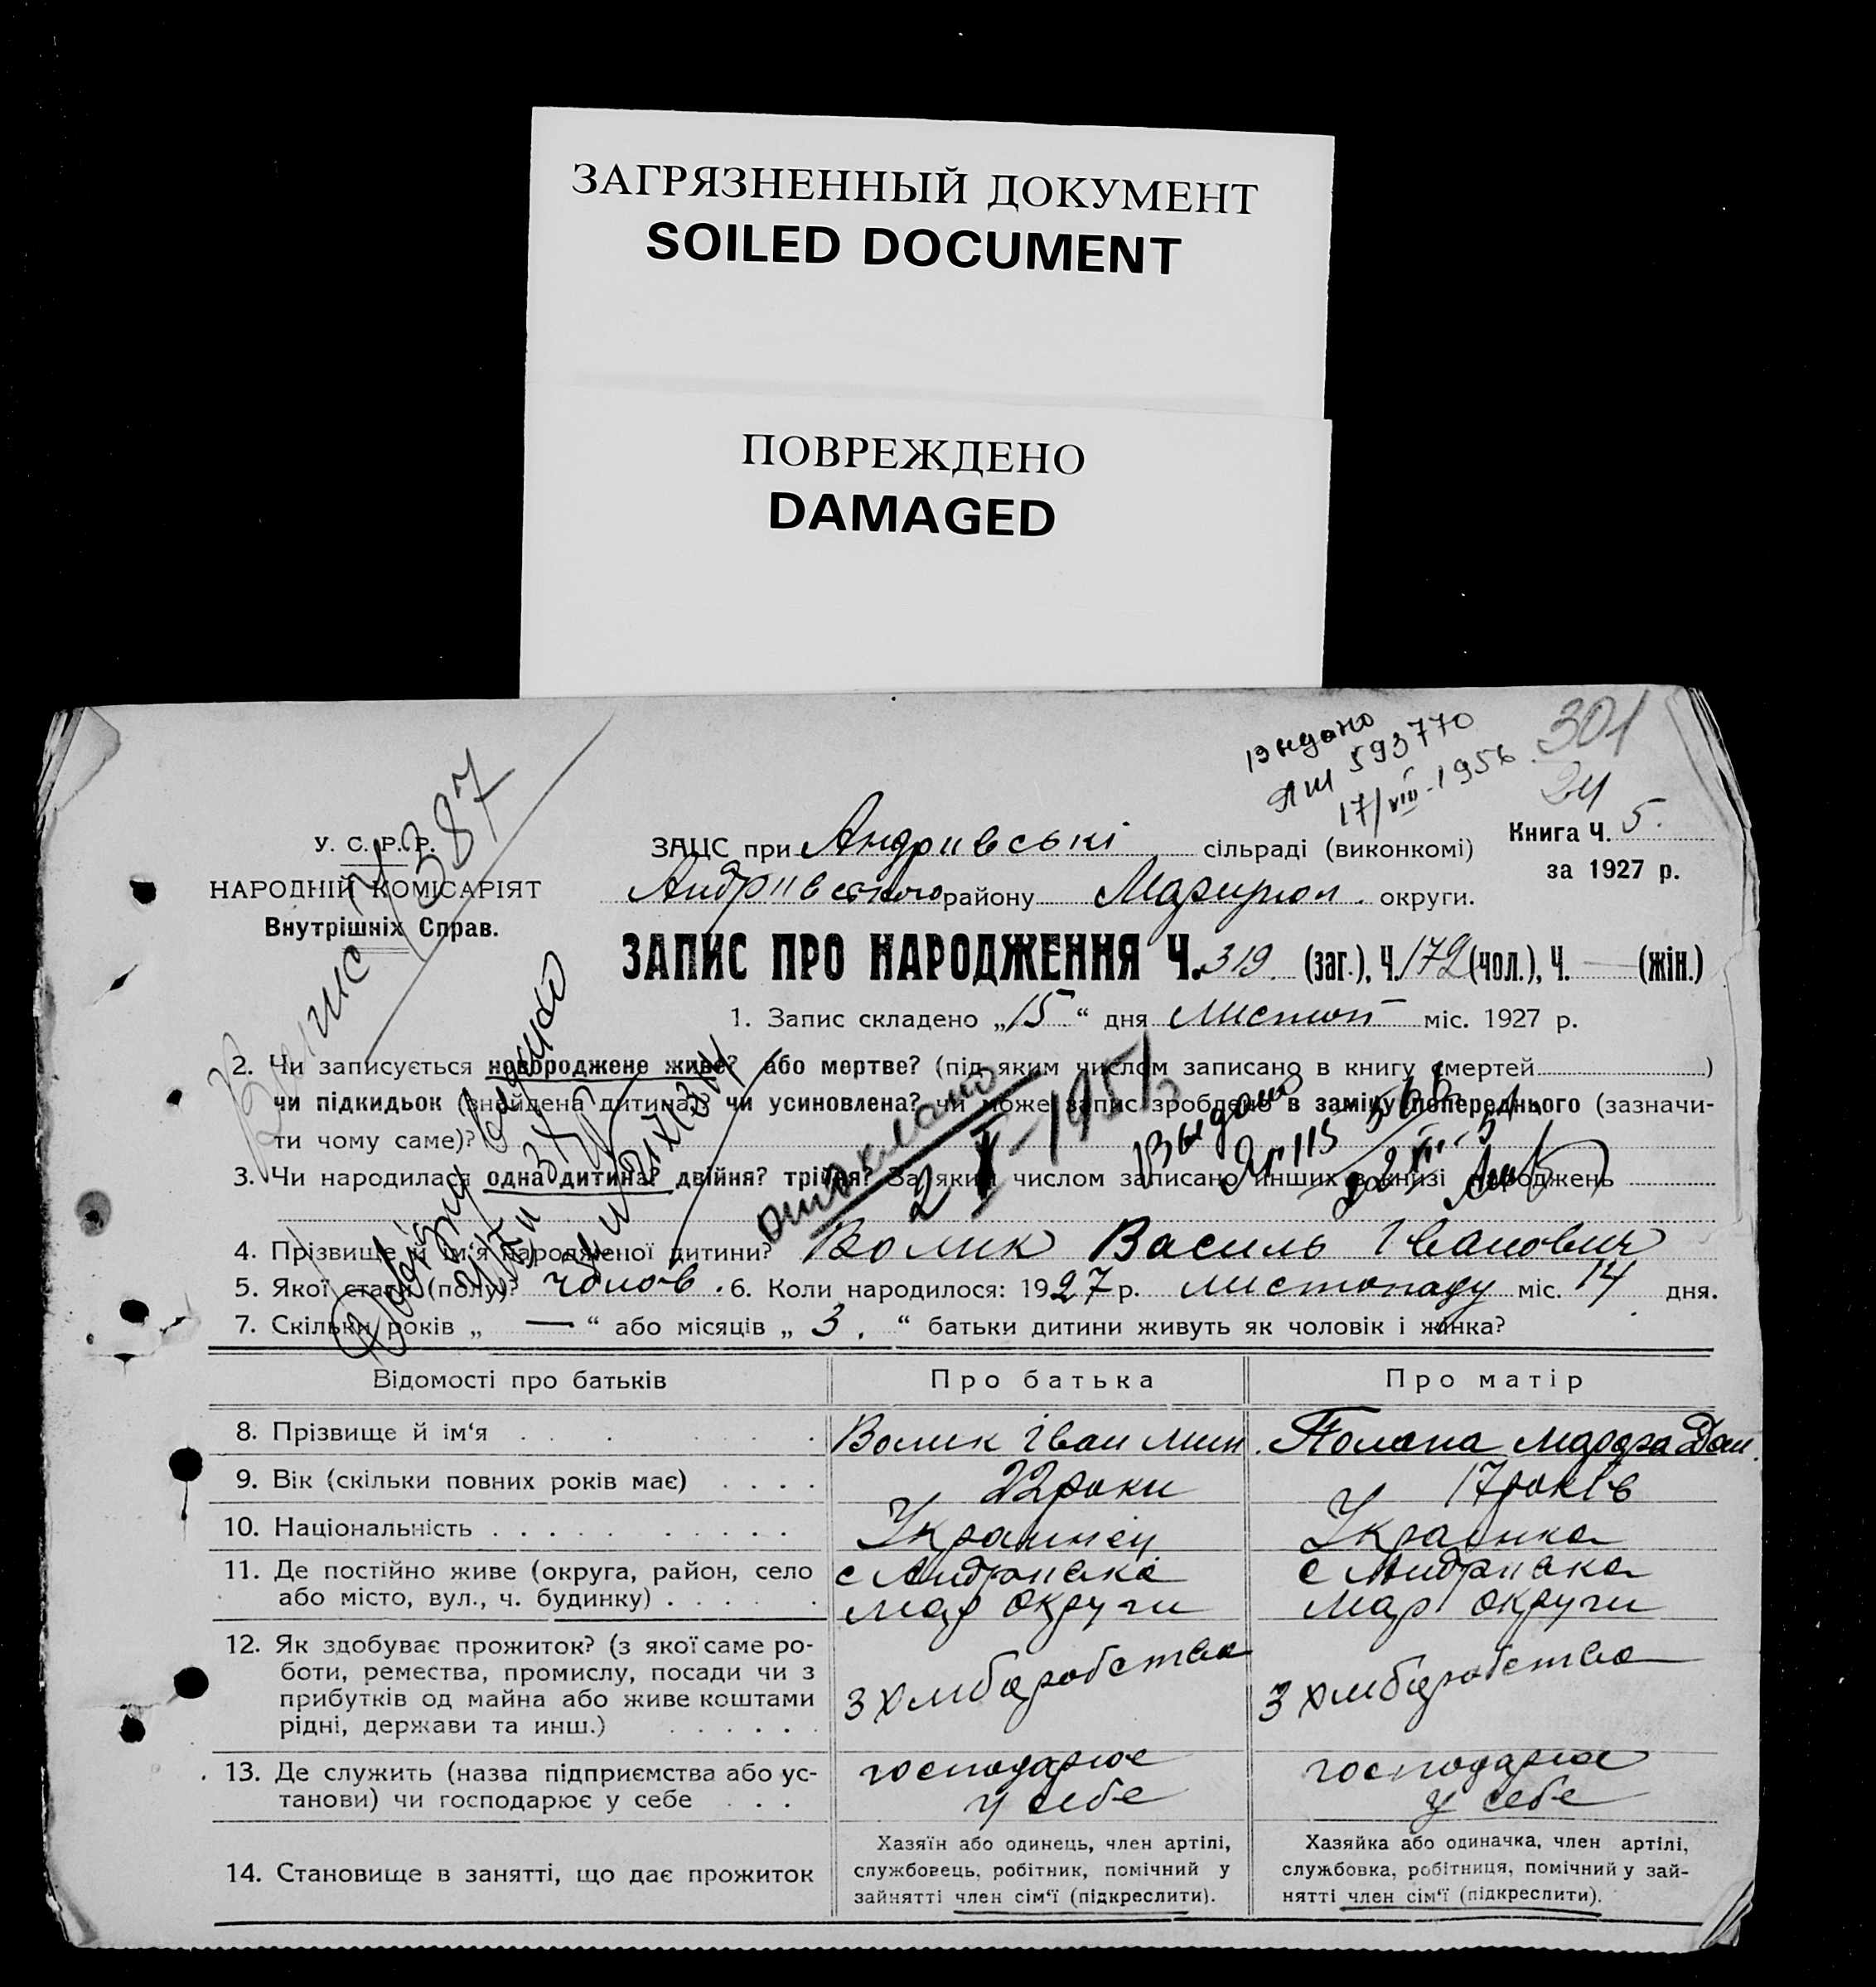 ЗАГРЯЗНЕННЫЙ ДОКУМЕНТ
SOILED DOCUMENT
ПОВРЕЖДЕНО
DAMAGED
301
24
593770
17/VIII-1956
У. С. Р. Р.
НАРОДНІЙ КОМІСАРІЯТ
Внутрішніх Справ.
387
ЗАЦС при Андриевські сільраді (виконкомі)
Книга Ч. 5.
за 1927 р.
Андриевского району Мариупол. округи.
ЗАПИС ПРО НАРОДЖЕННЯ Ч. 319 (заг.), Ч. 172 (чол.), Ч. — (жін.)
1. Запис складено „15“ дня Листоп міс. 1927 р.
2. Чи записується новороджене живе? або мертве? (під яким числом записано в книгу смертей )
чи підкидьок (знайдена дитина)? чи усиновлена? чи може запис зроблено в заміну попереднього (зазначи-
ти чому саме)?
3. Чи народилася одна дитина? двійня? трійня? За яким числом записано инших в книзі народжень
4. Прізвище й ім'я народженої дитини? Волик Василь Іванович
5. Якої стати (полу)? чолов. 6. Коли народилося: 1927 р. листопаду міс. 14 дня.
7. Скільки років „ — “ або місяців „ 3. “ батьки дитини живуть як чоловік і жінка?
Відомості про батьків Про батька Про матір
8. Прізвище й ім'я Волик Іван Мин.
9. Вік (скільки повних років має) 22 роки 17 років
10. Національність Украинец Украинка
11. Де постійно живе (округа, район, село
або місто, вул., ч. будинку) Мар округи Мар округи
12. Як здобуває прожиток? (з якої саме ро-
боти, ремества, промислу, посади чи з
прибутків од майна або живе коштами
рідні, держави та инш.)
з хлиборобства з хлиборобства
13. Де служить (назва підприємства або ус-
танови) чи господарює у себе
господарює господарює
у себе у себе
14. Становище в занятті, що дає прожиток
Хазяїн або одинець, член артілі,
службовець, робітник, помічний у
зайнятті член сім'ї (підкреслити).
Хазяйка або одиначка, член артілі,
службовка, робітниця, помічний у зай-
нятті член сім'ї (підкреслити).